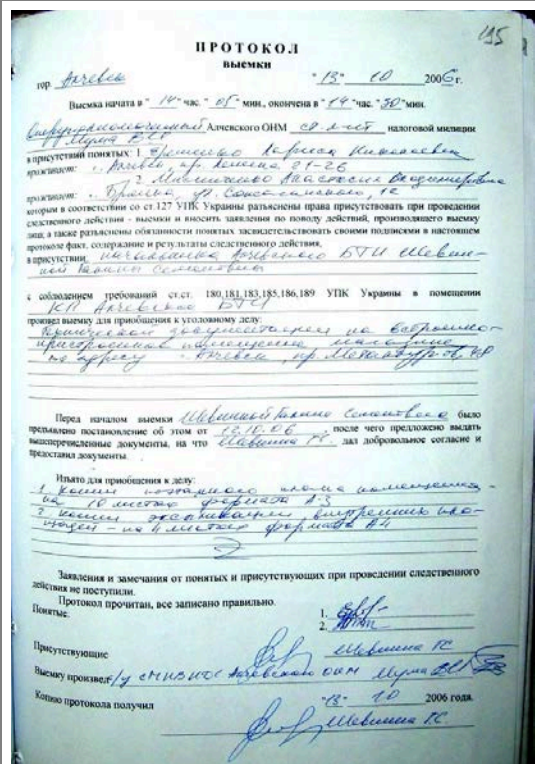 195
ПРОТОКОЛ
выемки
гор. Алчевск "13" 10 2006 г.
Выемка начата в "14" час. "05" мин., окончена в "14" час. "30" мин.
Алчевского ОНМ налоговой милиции
в присутствии понятых: 1. Лариса Николаевна
проживает: г. Алчевск, пр. Ленина 21-26
2. Анастасия Владимировна
проживает: г. Брянка, ул. 12
которым в соответствии со ст.127 УПК Украины разъяснены права присутствовать при проведении
следственного действия - выемки и вносить заявления по поводу действий, производящего выемку
лица, а также разъяснены обязанности понятых засвидетельствовать своими подписями в настоящем
протоколе факт, содержание и результаты следственного действия,
в присутствии начальника Алчевского БТИ Шевки-
ной Галины Семеновны
с соблюдением требований ст.ст. 180,181,183,185,186,189 УПК Украины в помещении
КП Алчевского БТИ
произвел выемку для приобщения к уголовному делу:
технической документации на встроенно-
пристроенное помещение магазина
по адресу г. Алчевск, пр. Металлургов,
Перед началом выемки Галине Семеновне было
предъявлено постановление об этом от 12.10.06, после чего предложено выдать
вышеперечисленные документы, на что дал добровольное согласие и
предоставил документы.
Изъято для приобщения к делу:
1. копии поэтажного плана помещения
на 10 листах формата А-3
2. копии экспликации внутренних пло-
щадей - на листах формата А4
Заявления и замечания от понятых и присутствующих при проведении следственного
действия не поступили.
Протокол прочитан, все записано правильно.
Понятые: 1.
2.
Присутствующие ГС
Выемку произвел Алчевского ОНМ
"13" 10 2006 года.
Копию протокола получил ГС